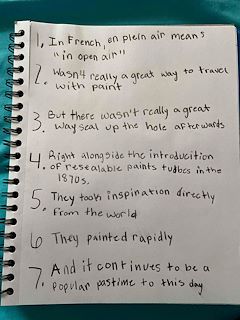 1. In French, en plein air means
"in open air"
2. Wasn't really a great way to travel
with paint
3. But there wasn't really a great
way seal up the hole afterwards
4. Right alongside the introduicition
of resealable paints tudbes in the
1870s.
5. They took inspination directly
from the world
6 They painted rapidly
7. And it continues to be a
popular pastime to this day